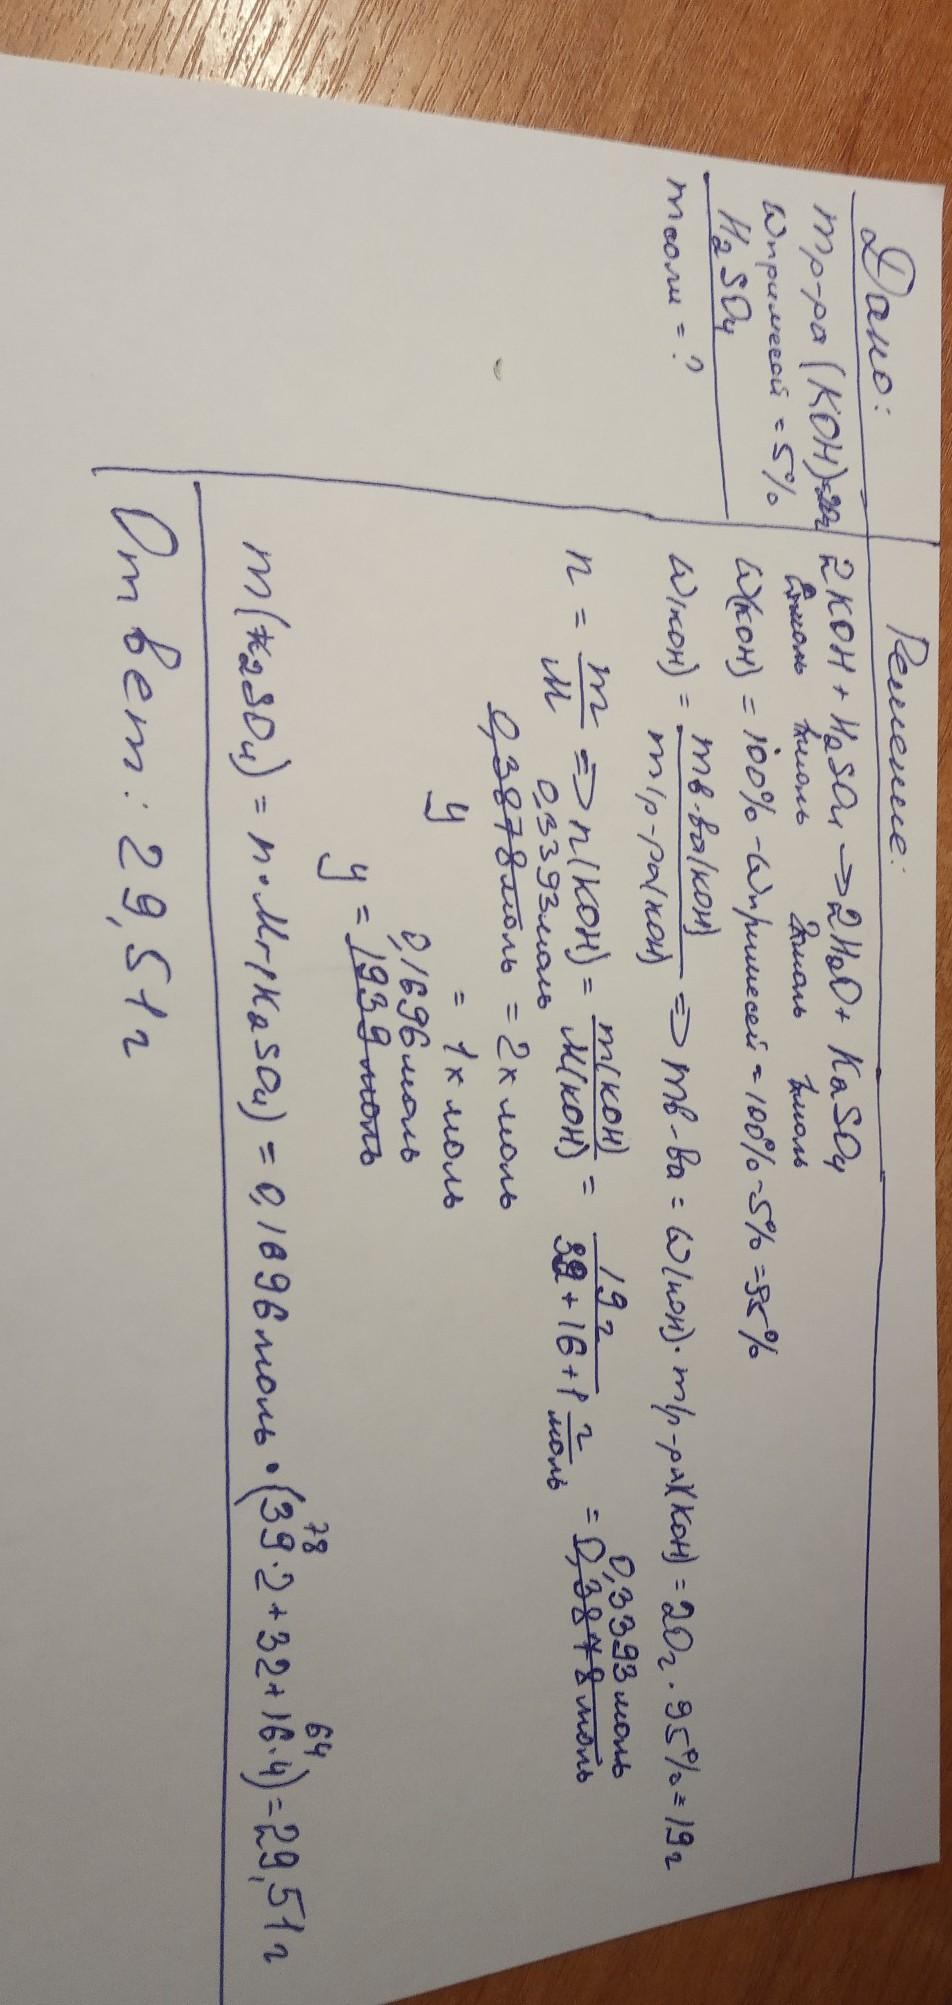 Дано:
m р-ра (KOH)=20г
ω примесей = 5%
H₂SO₄
m соли = ?
Решение:
2KOH + H₂SO₄ → 2H₂O + K₂SO₄
2моль 1моль 2моль 1моль
ω(KOH) = 100% - ω примесей = 100% - 5% = 95%
ω(KOH) = m в-ва(KOH) / m р-ра(KOH) => m в-ва = ω(KOH) · m р-ра(KOH) = 20г · 95% = 19г
n = m/M => n(KOH) = m(KOH)/M(KOH) = 19г / 39+16+1 г/моль = 0,3878моль
0,3393моль
0,3393моль
0,3878моль = 2х моль
y = 1х моль
0,1696моль
y = 1939 моль
78 64
m(K₂SO₄) = n · Mr(K₂SO₄) = 0,1696моль · (39·2+32+16·4) = 29,51г
Ответ: 29,51г